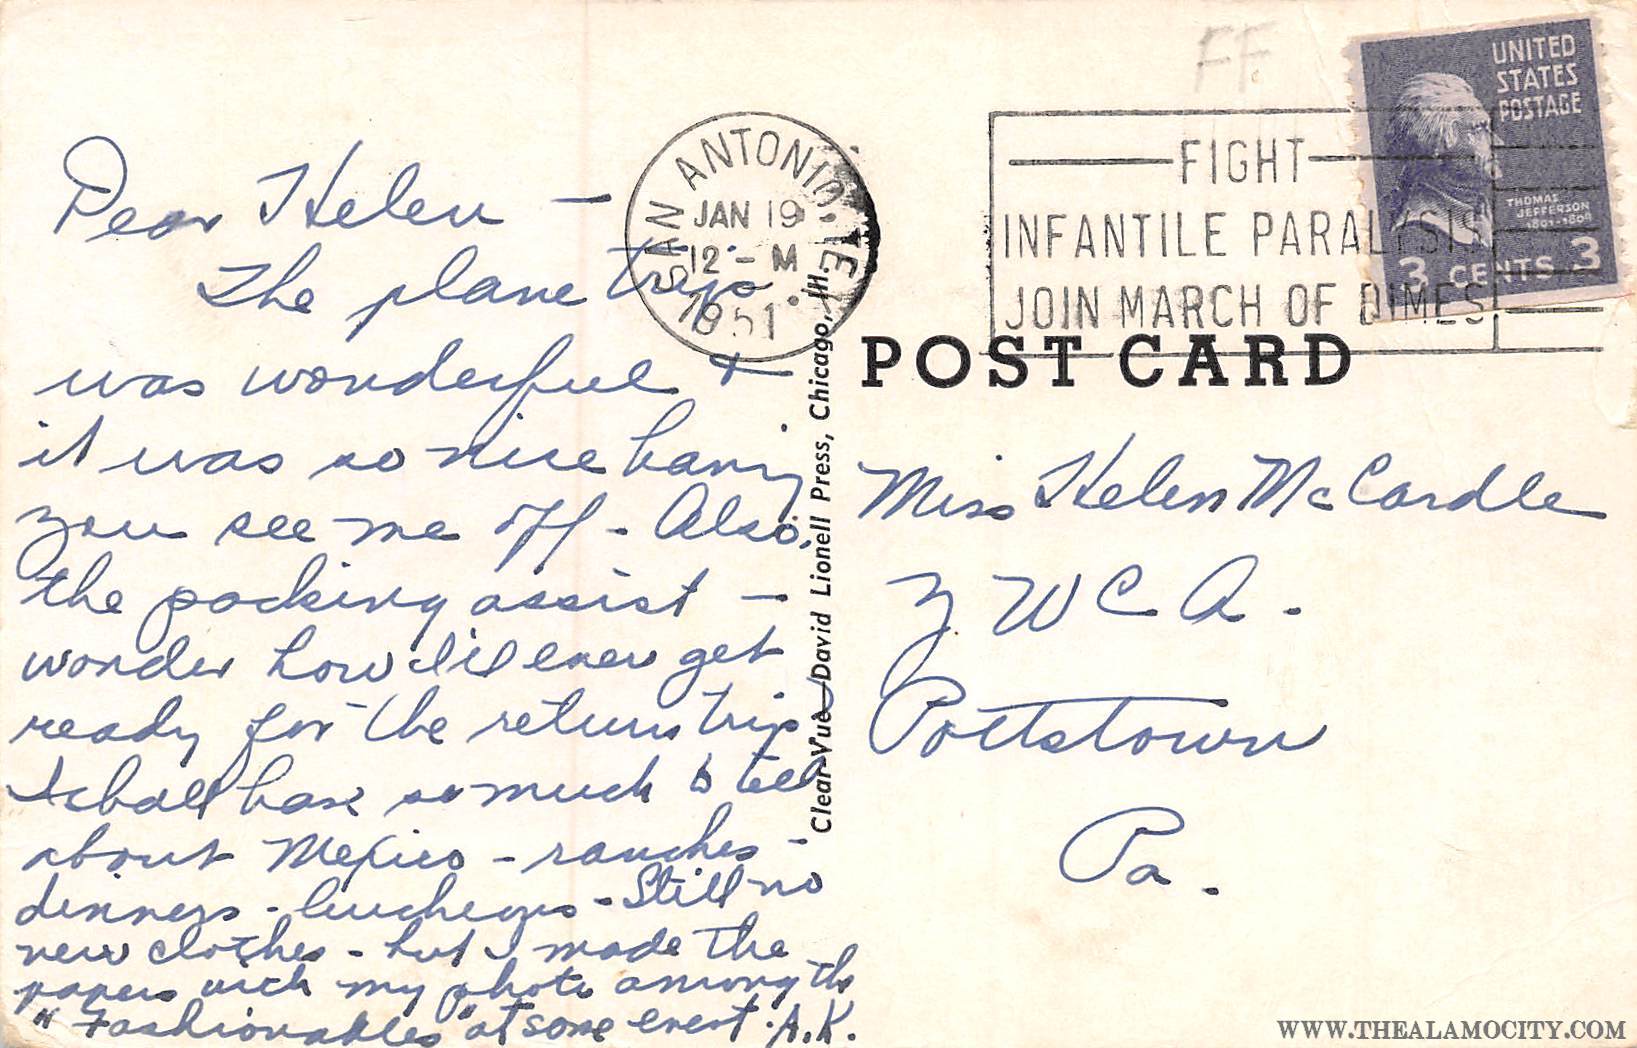 FF
UNITED
STATES
POSTAGE
THOMAS
JEFFERSON
1801-1809
3 CENTS 3
SAN ANTONIO, TEX.
JAN 19
12 - M
1951
FIGHT
INFANTILE PARALYSIS
JOIN MARCH OF DIMES
POST CARD
Dear Helen -
The plane trip
was wonderful &
it was so nice having
you see me off - Also,
the packing assist -
wonder how I'll ever get
ready for the return trip
I shall have so much to tell
about Mexico - ranches -
dinners - luncheons - Still no
new clothes - but I made the
papers with my photo among the
"Fashionables" at some event. A.K.
Clear-Vue—David Lionell Press, Chicago, Ill.
Miss Helen McCardle
Y W C A.
Pottstown
Pa.
WWW.THEALAMOCITY.COM